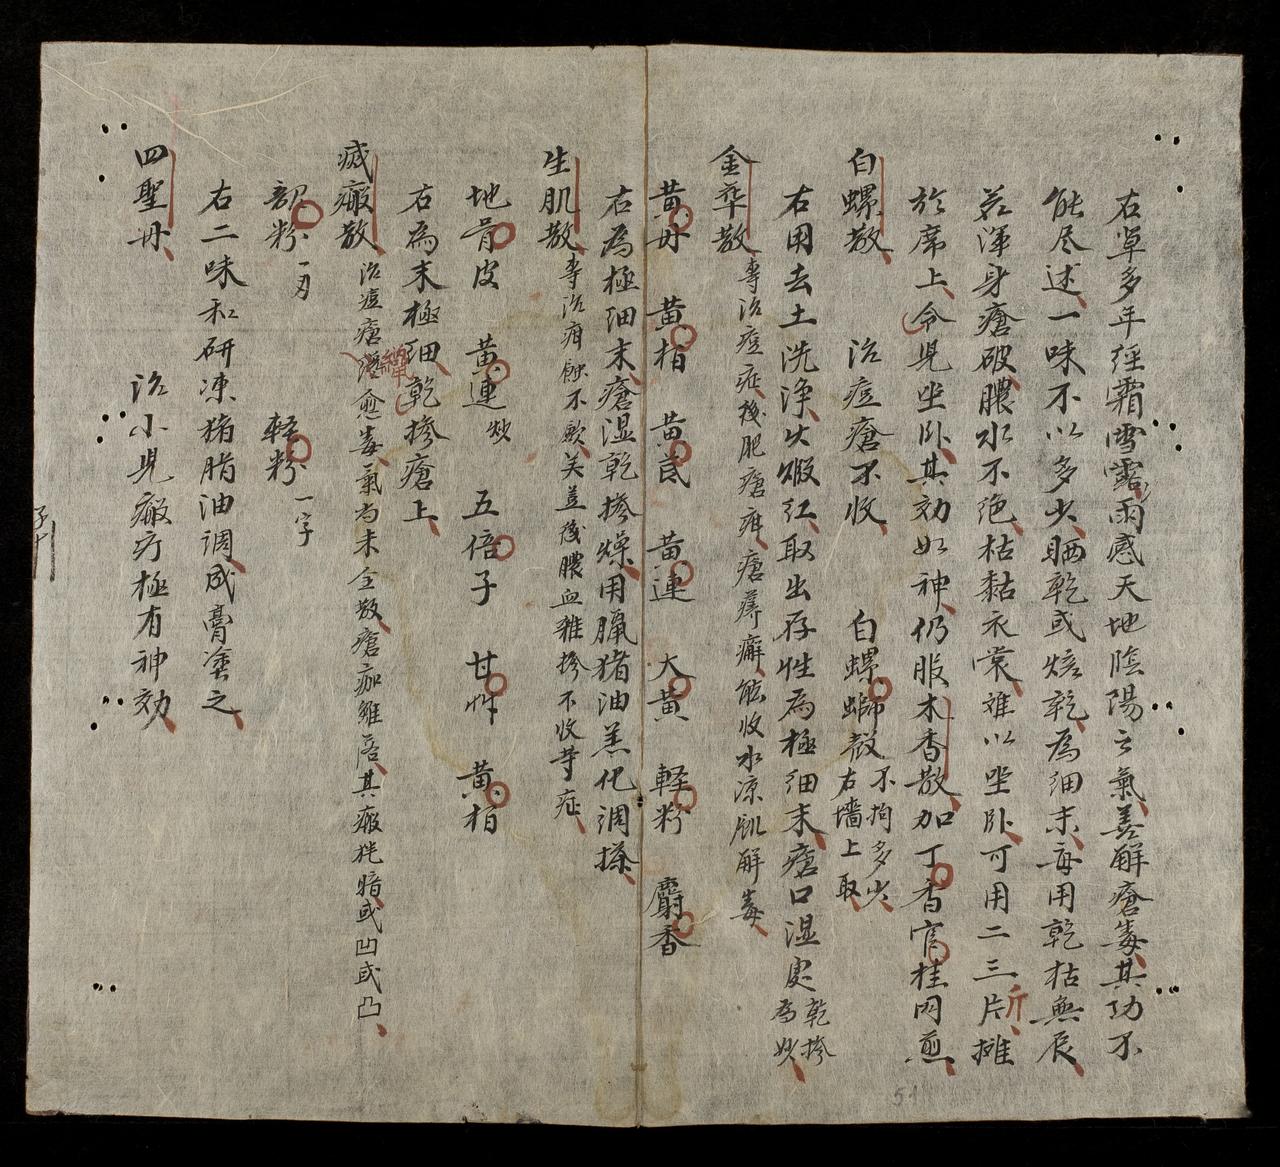 右草多年經霜雪露雨感天地陰陽之氣善解瘡毒其功不
能尽述一味不以多少晒乾或焙乾為細末每用乾枯無灰
若渾身瘡破膿水不絶枯黏衣裳难以坐卧可用二三斤片攤
於席上令児坐卧其効如神仍服木香散加丁香官桂同煎
白螺散　治痘瘡不收　白螺螄殻不拘多少右墻上取
右用去土洗浄火煅紅取出存性為極细末瘡口湿處乾掺為妙
金華散專治痘症後肥瘡疳瘡癬能收水凉肌解毒
黄丹　黄柏　黄芪　黄連　大黄　軽粉　麝香
右為極细末瘡湿乾掺燥用臘猪油羔化調搽
生肌散專治疳蝕不歛关並後膿血雜掺不收等症
地骨皮　黄連炒　五倍子　甘艸　黄柏
右為末極细乾掺瘡上
滅瘢散治痘瘡纔愈毒氣尚未全散瘡痂雖落其瘢猶暗或凹或凸
韶粉一刃　軽粉一字
右二味和研凍猪脂油調成膏塗之
四聖丹　治小児瘢疔極有神効
51